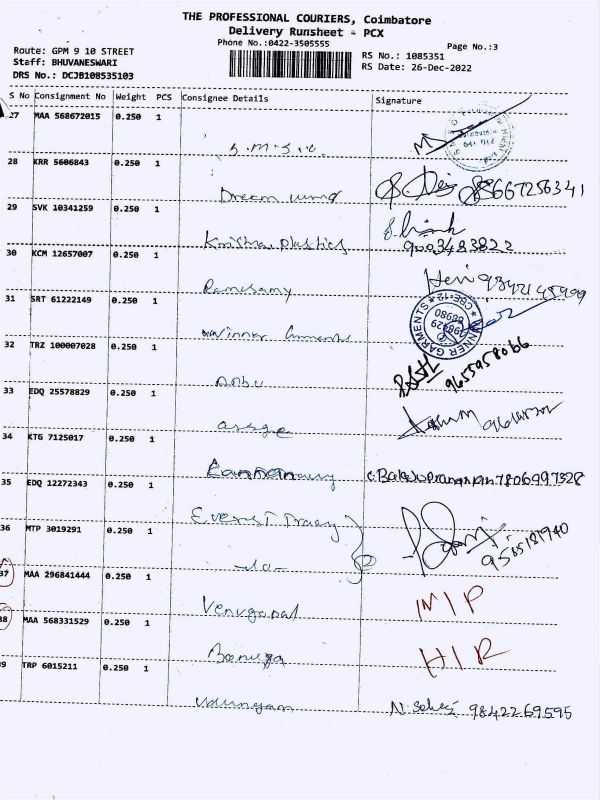 THE PROFESSIONAL COURIERS, Coimbatore
Delivery Runsheet - PCX
Phone No.:0422-3505555
Page No.:3
Route: GPM 9 10 STREET
Staff: BHUVANESWARI
DRS No.: DCJB108535103
RS No.: 1085351
RS Date: 26-Dec-2022
S No Consignment No Weight PCS Consignee Details Signature
27 MAA 568672015 0.250 1
S.M.S.
28 KRR 5606843 0.250 1
Dream 8667256341
29 SVK 10341259 0.250 1
Krishna Plastics 9003483822
30 KCM 12657007 0.250 1
Ramasamy Hari 9342145999
31 SRT 61222149 0.250 1
Winner Garments
WINNER GARMENTS ★ CBE-12 ★
32 TRZ 100007028 0.250 1
Anbu 9655958066
33 EDQ 25578829 0.250 1
34 KTG 7125017 0.250 1
7806997328
35 EDQ 12272343 0.250 1
Everest
36 MTP 3019291 0.250 1
9565181940
-do-
37 MAA 296841444 0.250 1
Venugopal M I P
38 MAA 568331529 0.250 1
H I R
39 TRP 6015211 0.250 1
9842269595